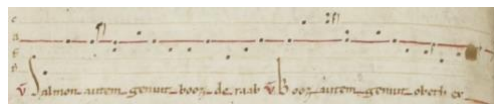 ℣ Salmon autem genuit booz de raab ℣ Booz autem genuit obeth ex